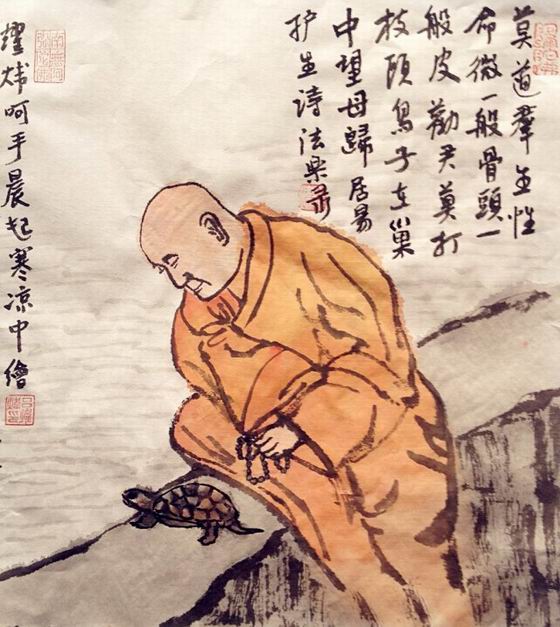 莫道羣生性
命微一般骨頭一
般皮勸君莫打
枝頭鳥子在巢
中望母歸 居易
护生诗 法樂录
耀炜呵手晨起寒凉中繪